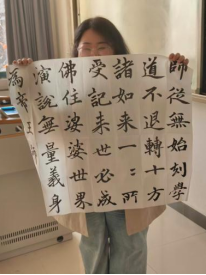 師從無始刻學
道不退轉十方
諸如来一二所
受記未世必成
佛住婆婆世界
演說無量義身
為